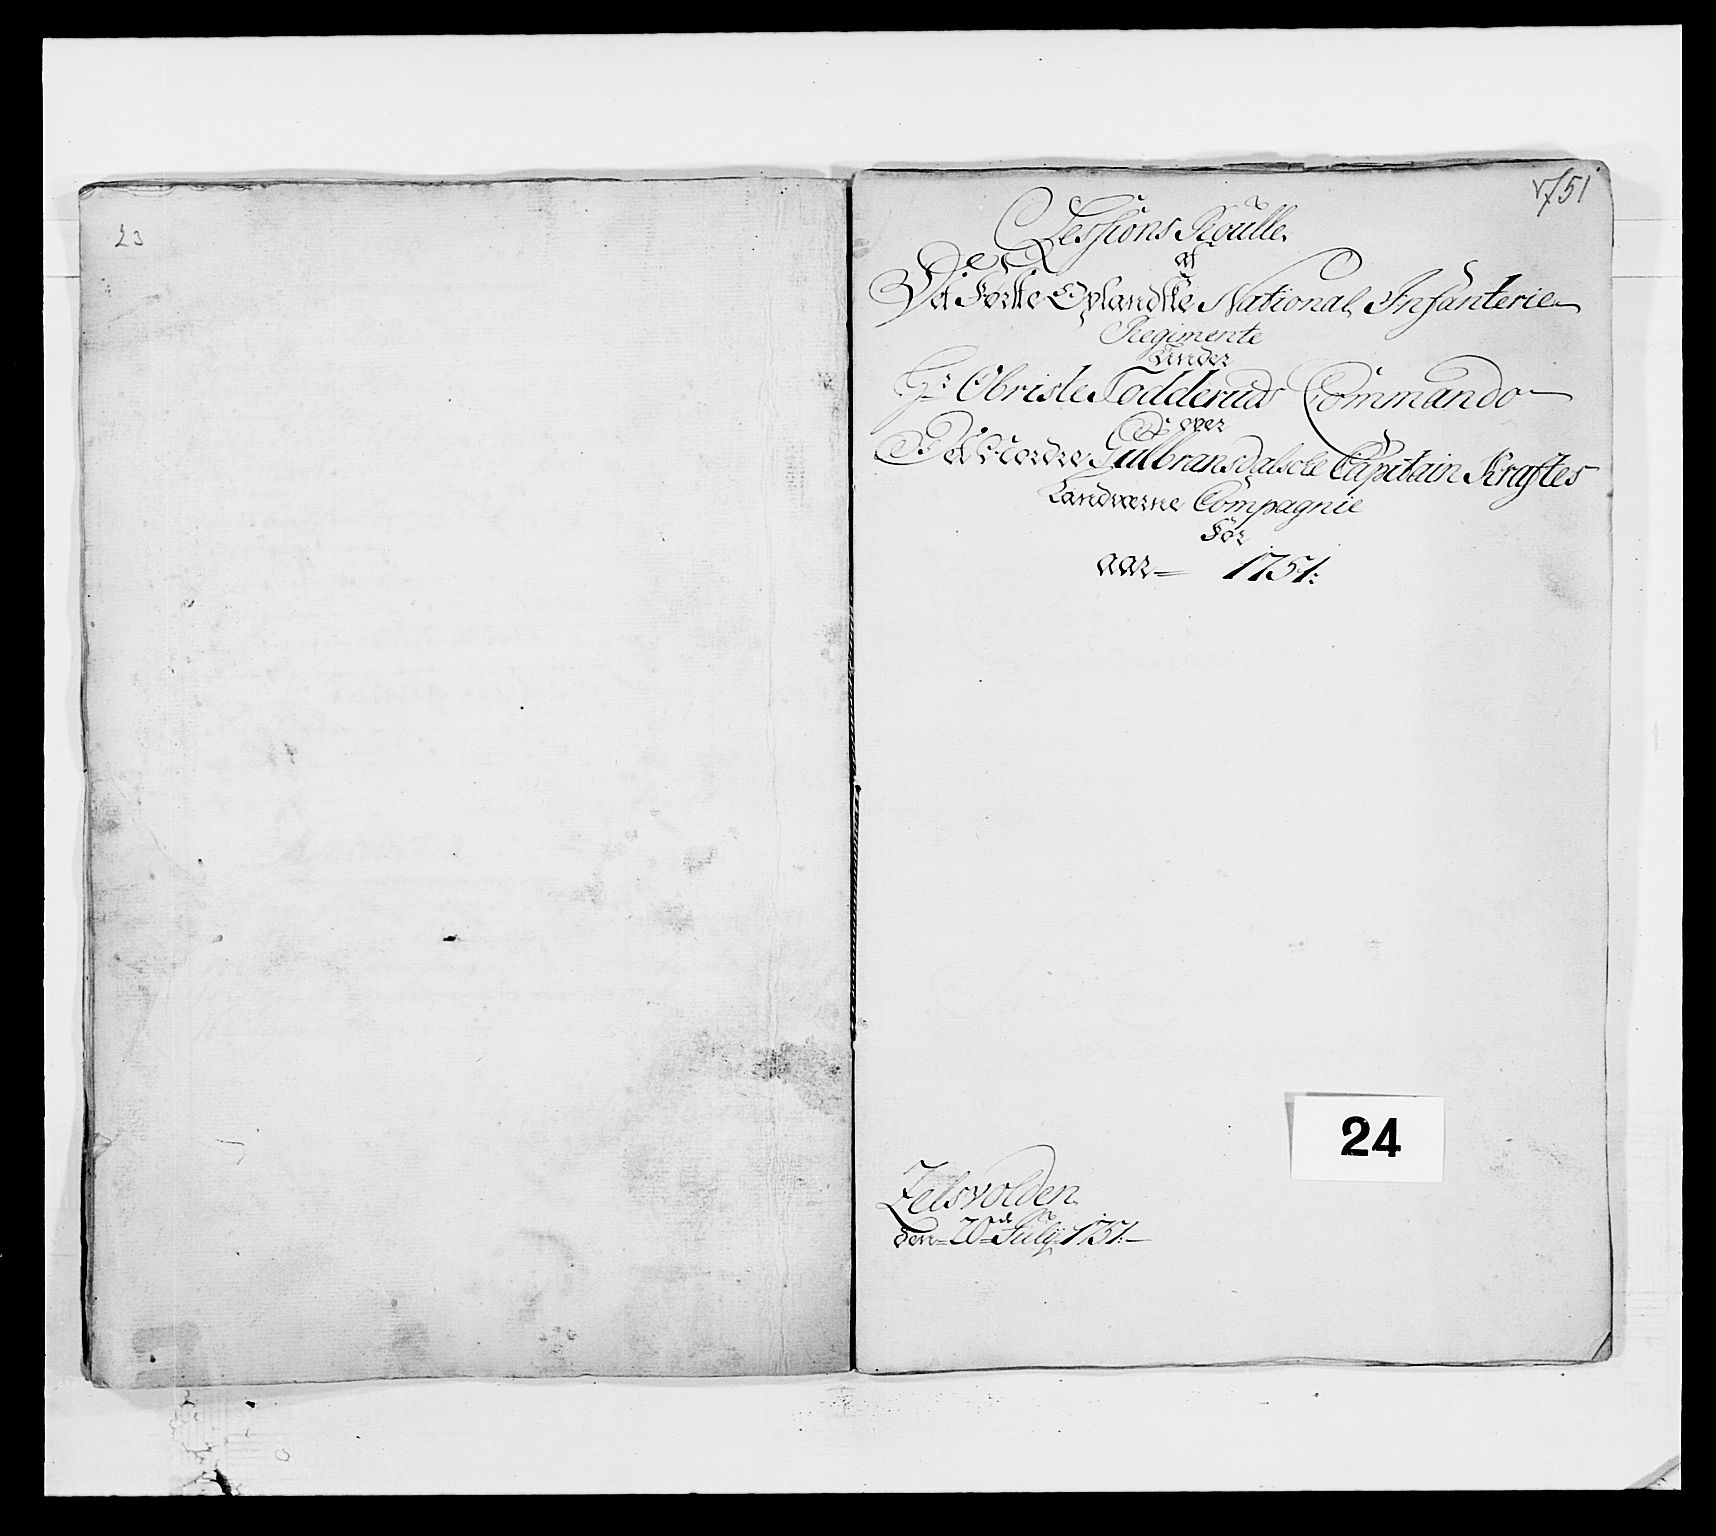 23
1751
Sessions Roulle
af
Det Første Oplandske National Infanterie
Regimente
Under
Hr Obriste Todderuds Commando
over
Det Nordre Gulbransdalsche Capitain Kraftes
Landværne Compagnie
For
aar 1751:
24
den 20de July 1751